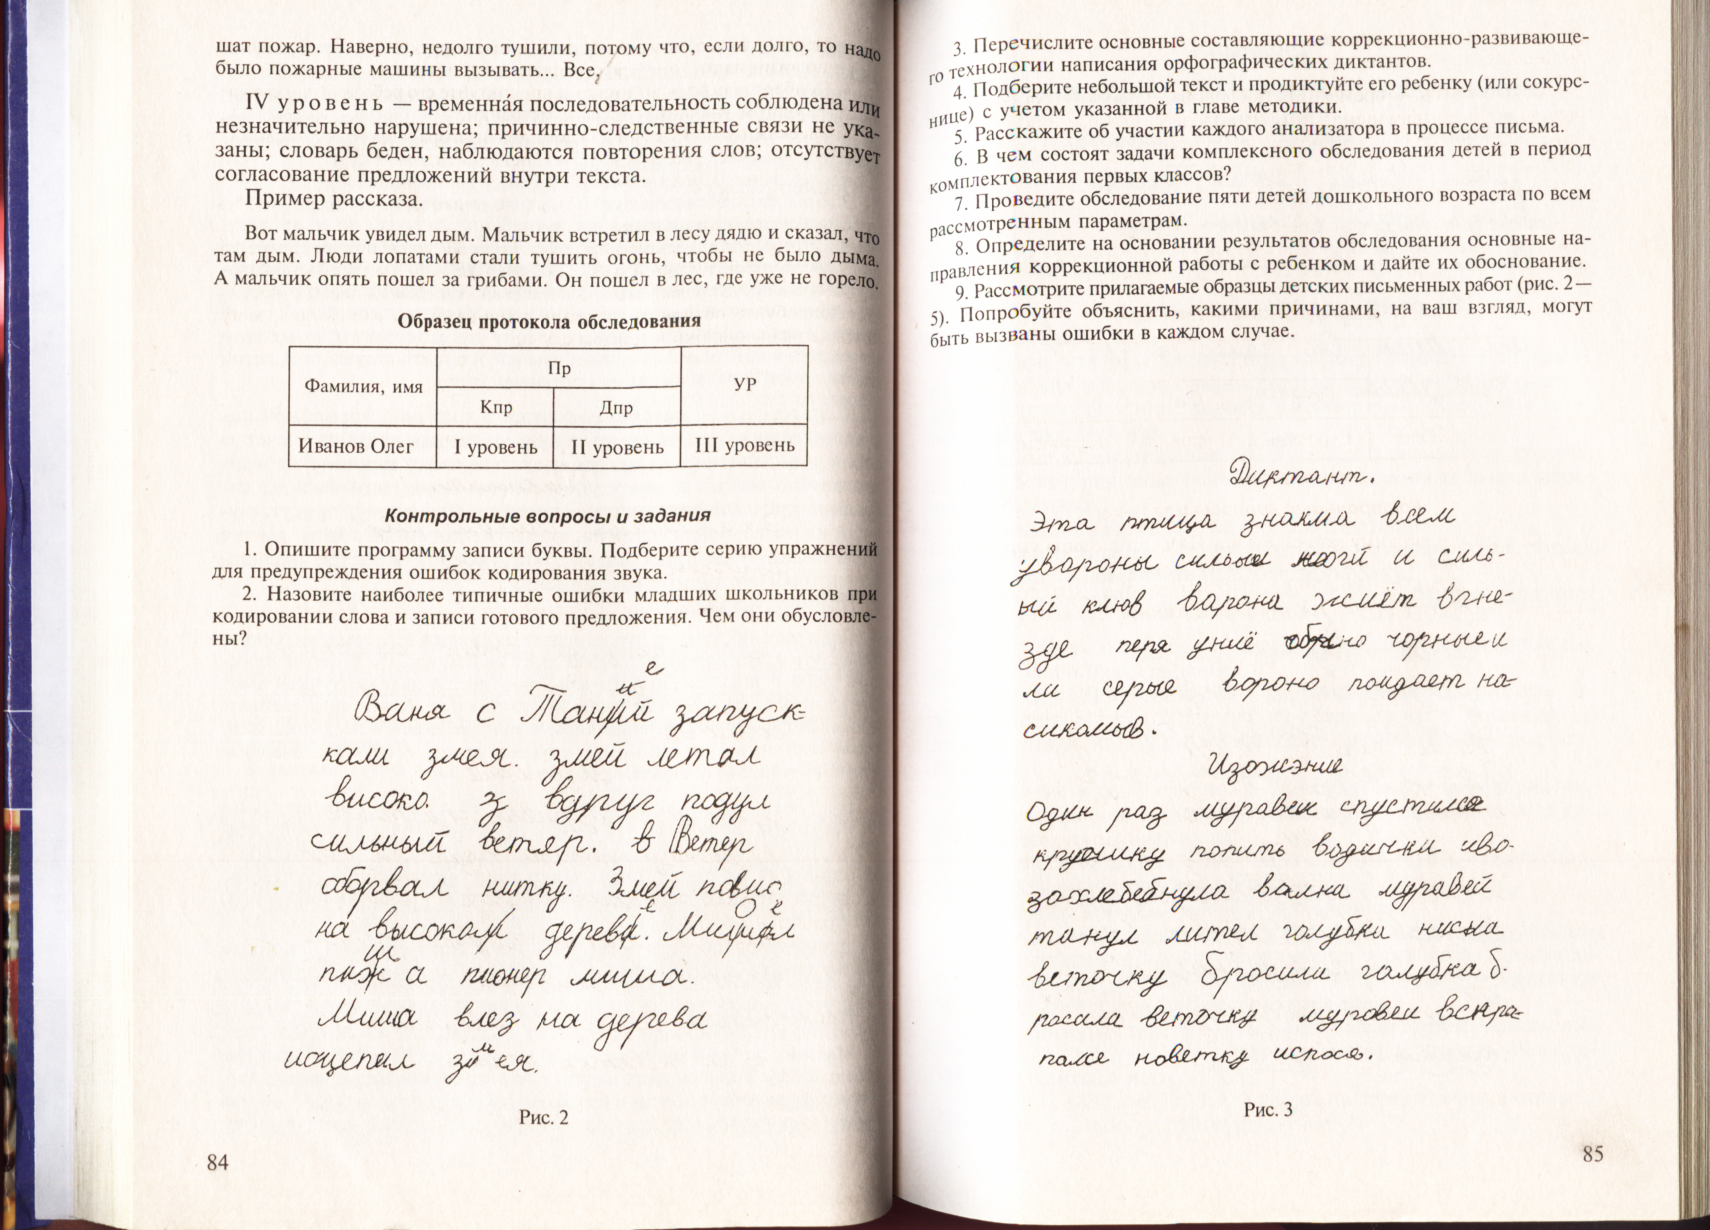 шат пожар. Наверно, недолго тушили, потому что, если долго, то надо
было пожарные машины вызывать... Все,
IV уровень — временна́я последовательность соблюдена или
незначительно нарушена; причинно-следственные связи не ука-
заны; словарь беден, наблюдаются повторения слов; отсутствует
согласование предложений внутри текста.
Пример рассказа.
Вот мальчик увидел дым. Мальчик встретил в лесу дядю и сказал, что
там дым. Люди лопатами стали тушить огонь, чтобы не было дыма.
А мальчик опять пошел за грибами. Он пошел в лес, где уже не горело.
Образец протокола обследования
Фамилия, имя
Пр
УР
Кпр
Дпр
Иванов Олег
I уровень
II уровень
III уровень
Контрольные вопросы и задания
1. Опишите программу записи буквы. Подберите серию упражнений
для предупреждения ошибок кодирования звука.
2. Назовите наиболее типичные ошибки младших школьников при
кодировании слова и записи готового предложения. Чем они обусловле-
ны?
Ваня с запуск-
кали змея. змей летал
високо. з вдруг подул
сильный ветяр. в Ветер
оборвал нитку. Змей повис
на высокам дереве.
а пионер миша.
Миша влез на дерева
исцепил змея.
Рис. 2
84
3. Перечислите основные составляющие коррекционно-развивающе-
го технологии написания орфографических диктантов.
4. Подберите небольшой текст и продиктуйте его ребенку (или сокурс-
нице) с учетом указанной в главе методики.
5. Расскажите об участии каждого анализатора в процессе письма.
6. В чем состоят задачи комплексного обследования детей в период
комплектования первых классов?
7. Проведите обследование пяти детей дошкольного возраста по всем
рассмотренным параметрам.
8. Определите на основании результатов обследования основные на-
правления коррекционной работы с ребенком и дайте их обоснование.
9. Рассмотрите прилагаемые образцы детских письменных работ (рис. 2—
5). Попробуйте объяснить, какими причинами, на ваш взгляд, могут
быть вызваны ошибки в каждом случае.
Диктант.
Эта птица знакма всем
увароны и силь-
ый клюв варона жмёт вгне-
зде перя униё чорные и
ли серые вороно поидает на-
сикомыв.
Изожэние
Один раз муравеи спустилса
попить водички иво-
захлебебнула валка муравей
танул лител голубка нисла
веточку бросила галубка б.
росала веточку муровеи вскра-
палсе новетку испося.
Рис. 3
85